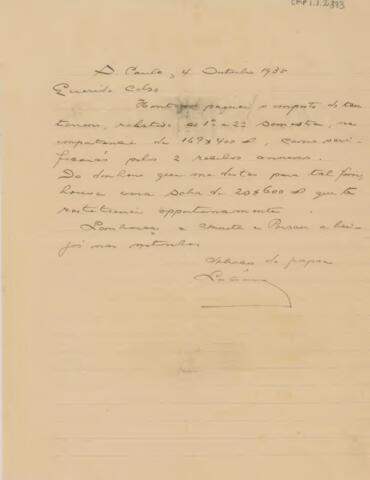 CMP 1.1.2393
S. Paulo, 4 Outubro 1930
Querido Celso
Hontem paguei o imposto do
relativo ao 1º e 2º semestre, na
importancia de 169$400, como veri-
ficarás pelos 2 recibos annexos.
Do dinheiro que me destes para tal fim,
houve uma sobra de 20$600 que te
restituirei opportunamente.
Lembranças a e a bei-
jos nas netinhas
do papae